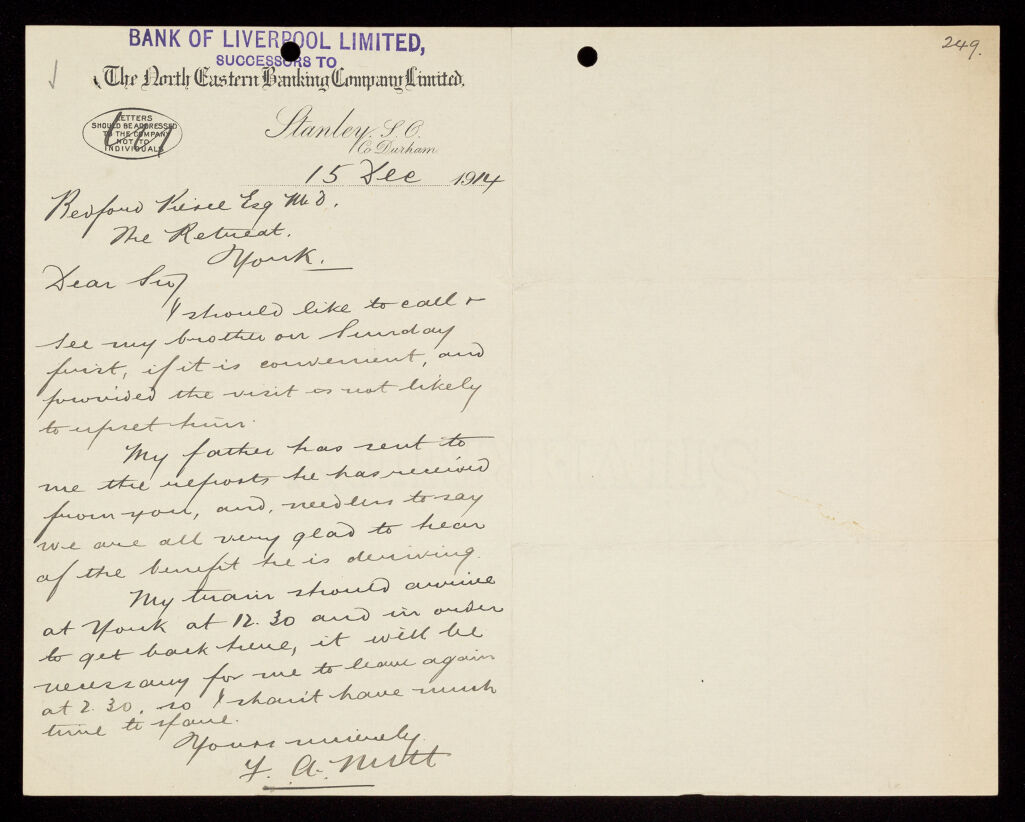 249.
BANK OF LIVERPOOL LIMITED,
SUCCESSORS TO
The North Eastern Banking Company Limited.
LETTERS
SHOULD BE ADDRESSED
TO THE COMPANY
NOT TO
INDIVIDUALS
Stanley, S.O.
Co Durham
15 Dec 1914
Bedford Pierce Esq M.D.
The Retreat.
York.
Dear Sir,
I should like to call &
see my brother on Sunday
first, if it is convenient, and
provided the visit is not likely
to upset him.
My father has sent to
me the reports he has received
from you, and, needless to say
we are all very glad to hear
of the benefit he is deriving.
My train should arrive
at York at 12.30 and in order
to get back here, it will be
necessary for me to leave again
at 2.30, so I shan't have much
time to spare.
Yours sincerely
F. A.